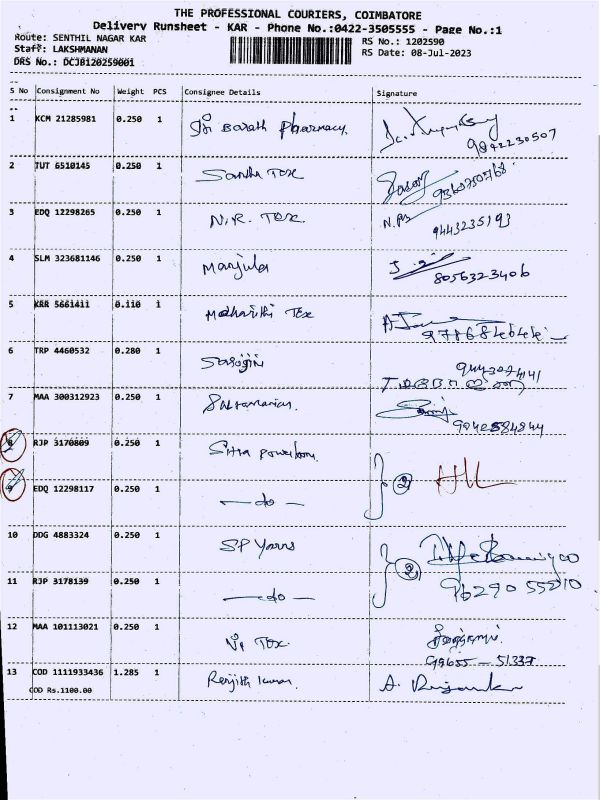 THE PROFESSIONAL COURIERS, COIMBATORE
Delivery Runsheet - KAR - Phone No.:0422-3505555 - Page No.:1
Route: SENTHIL NAGAR KAR
RS No.: 1202590
Staff: LAKSHMANAN
RS Date: 08-Jul-2023
DRS No.: DCJ0120259001
S No Consignment No Weight PCS Consignee Details Signature
1 KCM 21285981 0.250 1 Sri Barath Pharmacy
9842230507
2 TUT 6510145 0.250 1 Santha Tex
9360750768
3 EDQ 12298265 0.250 1 N.R. Tex
9443235193
4 SLM 323681146 0.250 1 Manjula
8056323406
5 KRR 5661411 0.110 1 Tex
6 TRP 4460532 0.280 1 Sarojini
7 MAA 300312923 0.250 1
9842584844
8 RJP 3170809 0.250 1 Sitra powerloom
2
9 EDQ 12298117 0.250 1 — do —
10 DDG 4883324 0.250 1 SP Yarns
2
11 RJP 3178139 0.250 1 — do —
9629055210
12 MAA 101113021 0.250 1 Tex
99655 - 51337
13 COD 1111933436 1.285 1 Renjith kumar
COD Rs.1100.00